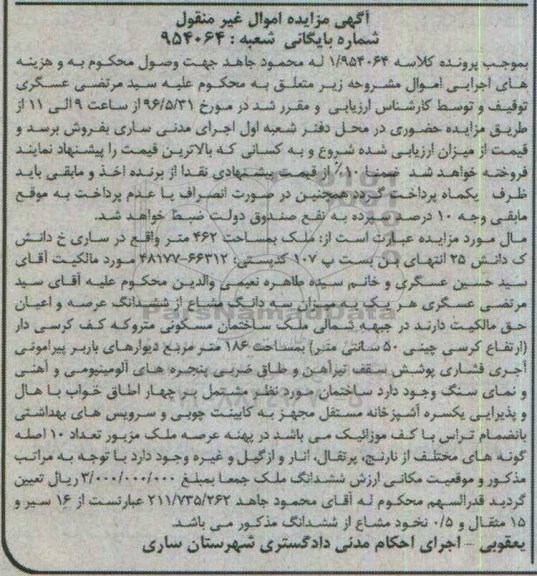 آگهی مزایده اموال غیر منقول
شماره بایگانی شعبه : ۹۵۴۰۶۴
بموجب پرونده کلاسه ۱/۹۵۴۰۶۴ له محمود جاهد جهت وصول محکوم به و هزینه
های اجرایی اموال مشروحه زیر متعلق به محکوم علیه سید مرتضی عسگری
توقیف و توسط کارشناس ارزیابی و مقرر شد در مورخ ۹۶/۵/۳۱ از ساعت ۹ الی ۱۱ از
طریق مزایده حضوری در محل دفتر شعبه اول اجرای مدنی ساری بفروش برسد و
قیمت از میزان ارزیابی شده شروع و به کسانی که بالاترین قیمت را پیشنهاد نمایند
فروخته خواهد شد ضمنا ۱۰٪ از قیمت پیشنهادی نقدا از برنده اخذ و مابقی باید
ظرف یکماه پرداخت گردد همچنین در صورت انصراف یا عدم پرداخت به موقع
مابقی وجه ۱۰ درصد سپرده به نفع صندوق دولت ضبط خواهد شد.
مال مورد مزایده عبارت است از: ملک بمساحت ۴۶۲ متر واقع در ساری خ دانش
ک دانش ۲۵ انتهای بن بست پ ۱۰۷ کدپستی: ۶۶۳۱۲-۴۸۱۷۷ مورد مالکیت آقای
سید حسین عسگری و خانم سیده طاهره نعیمی والدین محکوم علیه آقای سید
مرتضی عسگری هر یک به میزان سه دانگ مشاع از ششدانگ عرصه و اعیان
حق مالکیت دارند در جبهه شمالی ملک ساختمان مسکونی متروکه کف کرسی دار
(ارتفاع کرسی چینی ۵۰ سانتی متر) بمساحت ۱۸۶ متر مربع دیوارهای باربر پیرامونی
آجری فشاری پوشش سقف تیرآهن و طاق ضربی پنجره های آلومینیومی و آهنی
و نمای سنگ وجود دارد ساختمان مورد نظر مشتمل بر چهار اطاق خواب با هال
و پذیرایی یکسره آشپزخانه مستقل مجهز به کابینت چوبی و سرویس های بهداشتی
بانضمام تراس با کف موزائیک می باشد در پهنه عرصه ملک مزبور تعداد ۱۰ اصله
گونه های مختلف از نارنج، پرتقال، انار و ازگیل و غیره وجود دارد با توجه به مراتب
مذکور و موقعیت مکانی ارزش ششدانگ ملک جمعا بمبلغ ۳/۰۰۰/۰۰۰/۰۰۰ ریال تعیین
گردید قدرالسهم محکوم له آقای محمود جاهد ۲۱۱/۷۳۵/۲۶۲ عبارتست از ۱۶ سیر و
۱۵ مثقال و ۰/۵ نخود مشاع از ششدانگ مذکور می باشد.
یعقوبی - اجرای احکام مدنی دادگستری شهرستان ساری
ParsNamadData